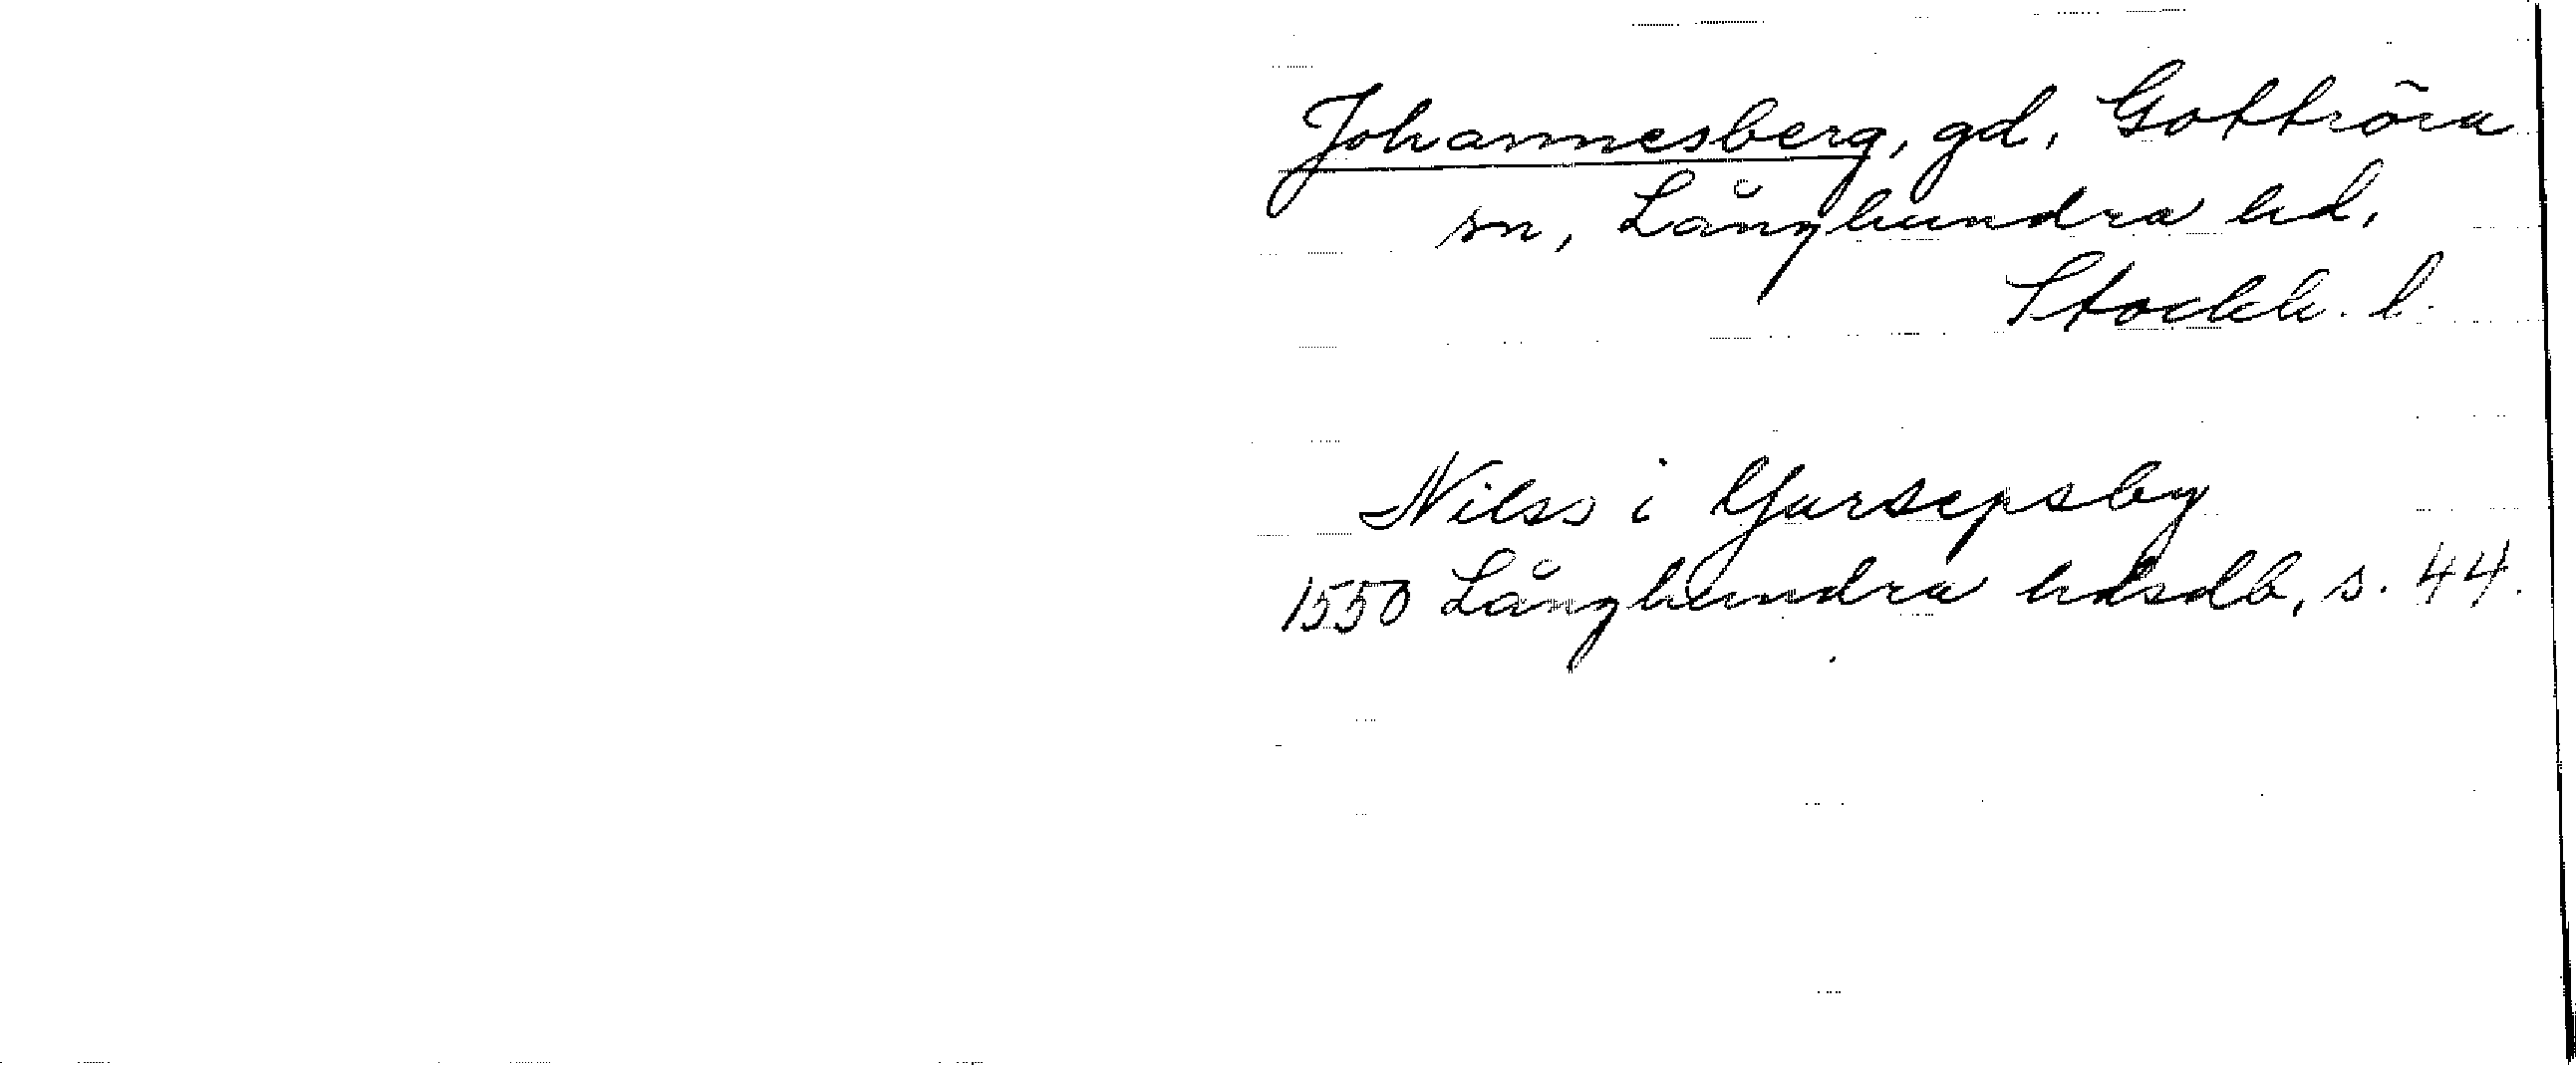 Johannesberg, gd, Gottröra
sn, Långhundra hd,
Stockh. l.
Nilss i Gursepsby
1550 Långhundra hdsdb, s. 44.